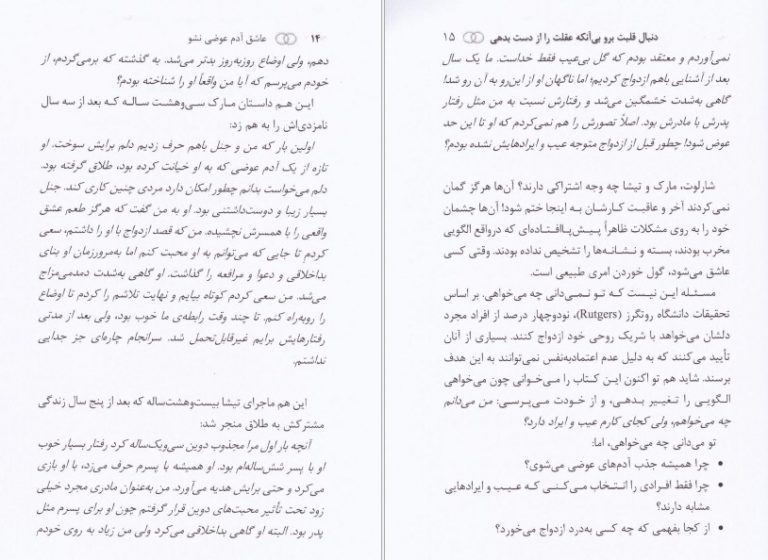 ۱۴ عاشق آدم عوضی نشو
دهم، ولی اوضاع روزبه‌روز بدتر می‌شد. به گذشته که برمی‌گردم، از
خودم می‌پرسم که آیا من واقعاً او را شناخته بودم؟
این هم داستان مارک سی‌وهشت ساله که بعد از سه سال
نامزدی‌اش را به هم زد:
اولین بار که من و جنل باهم حرف زدیم دلم برایش سوخت. او
تازه از یک آدم عوضی که به او خیانت کرده بود، طلاق گرفته بود.
دلم می‌خواست بدانم چطور امکان دارد مردی چنین کاری کند. جنل
بسیار زیبا و دوست‌داشتنی بود. او به من گفت که هرگز طعم عشق
واقعی را با همسرش نچشیده. من که قصد ازدواج با او را داشتم، سعی
کردم تا جایی که می‌توانم به او محبت کنم اما به‌مرورزمان او بنای
بداخلاقی و دعوا و مرافعه را گذاشت. او گاهی به‌شدت دمدمی‌مزاج
می‌شد. من سعی کردم کوتاه بیایم و نهایت تلاشم را کردم تا اوضاع
را روبه‌راه کنم. تا چند وقت رابطه‌ی ما خوب بود، ولی بعد از مدتی
رفتارهایش برایم غیرقابل‌تحمل شد. سرانجام چاره‌ای جز جدایی
نداشتم.
این هم ماجرای تیشا بیست‌وهشت‌ساله که بعد از پنج سال زندگی
مشترکش به طلاق منجر شد:
آنچه بار اول مرا مجذوب دوین سی‌ویک‌ساله کرد رفتار بسیار خوب
او با پسر شش‌ساله‌ام بود. او همیشه با پسرم حرف می‌زد، با او بازی
می‌کرد و حتی برایش هدیه می‌آورد. من به‌عنوان مادری مجرد خیلی
زود تحت تأثیر محبت‌های دوین قرار گرفتم چون او برای پسرم مثل
پدر بود. البته او گاهی بداخلاقی می‌کرد ولی من زیاد به روی خودم
دنبال قلبت برو بی‌آنکه عقلت را از دست بدهی ۱۵
نمی‌آوردم و معتقد بودم که گل بی‌عیب فقط خداست. ما یک سال
بعد از آشنایی باهم ازدواج کردیم؛ اما ناگهان او از این‌رو به آن رو شد!
گاهی به‌شدت خشمگین می‌شد و رفتارش نسبت به من مثل رفتار
پدرش با مادرش بود. اصلاً تصورش را هم نمی‌کردم که او تا این حد
عوض شود! چطور قبل از ازدواج متوجه عیب و ایرادهایش نشده بودم؟
شارلوت، مارک و تیشا چه وجه اشتراکی دارند؟ آن‌ها هرگز گمان
نمی‌کردند آخر و عاقبت کارشان به اینجا ختم شود! آن‌ها چشمان
خود را به روی مشکلات ظاهراً پیش‌پاافتاده‌ای که درواقع الگویی
مخرب بودند، بسته و نشانه‌ها را تشخیص نداده بودند. وقتی کسی
عاشق می‌شود، گول خوردن امری طبیعی است.
مسئله این نیست که تو نمی‌دانی چه می‌خواهی. بر اساس
تحقیقات دانشگاه روتگرز (Rutgers)، نودوچهار درصد از افراد مجرد
دلشان می‌خواهد با شریک روحی خود ازدواج کنند. بسیاری از آنان
تأیید می‌کنند که به دلیل عدم اعتمادبه‌نفس نمی‌توانند به این هدف
برسند. شاید هم تو اکنون این کتاب را می‌خوانی چون می‌خواهی
الگویی را تغییر بدهی، و از خودت می‌پرسی: من می‌دانم
چه می‌خواهم، ولی کجای کارم عیب و ایراد دارد؟
تو می‌دانی چه می‌خواهی، اما:
• چرا همیشه جذب آدم‌های عوضی می‌شوی؟
• چرا فقط افرادی را انتخاب می‌کنی که عیب و ایرادهایی
مشابه دارند؟
• از کجا بفهمی که چه کسی به‌درد ازدواج می‌خورد؟